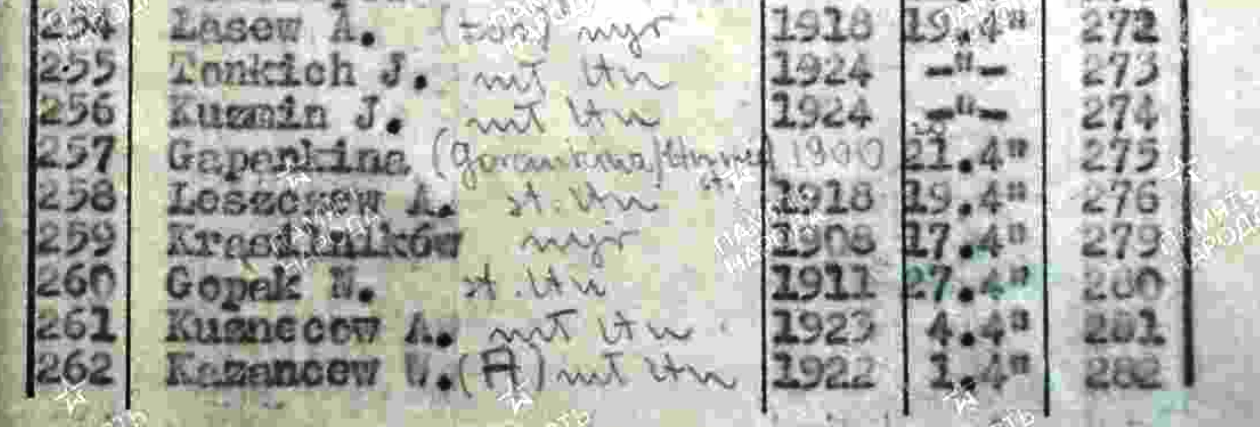 254 Lasew A. (zos) mjr 1918 19.4" 272
255 Tonkich J. mł ltn 1924 -"- 273
256 Kuzmin J. mł ltn 1924 -"- 274
257 Gaparkina 1900 21.4" 275
258 Leszczew A. st. ltn 1918 19.4" 276
259 Krasilników mjr 1908 17.4" 279
260 Gopak N. st. ltn 1911 27.4" 280
261 Kuznecow A. mł ltn 1923 4.4" 281
262 Kazancew W. (A) mł ltn 1922 1.4" 282
ПАМЯТЬ НАРОДА